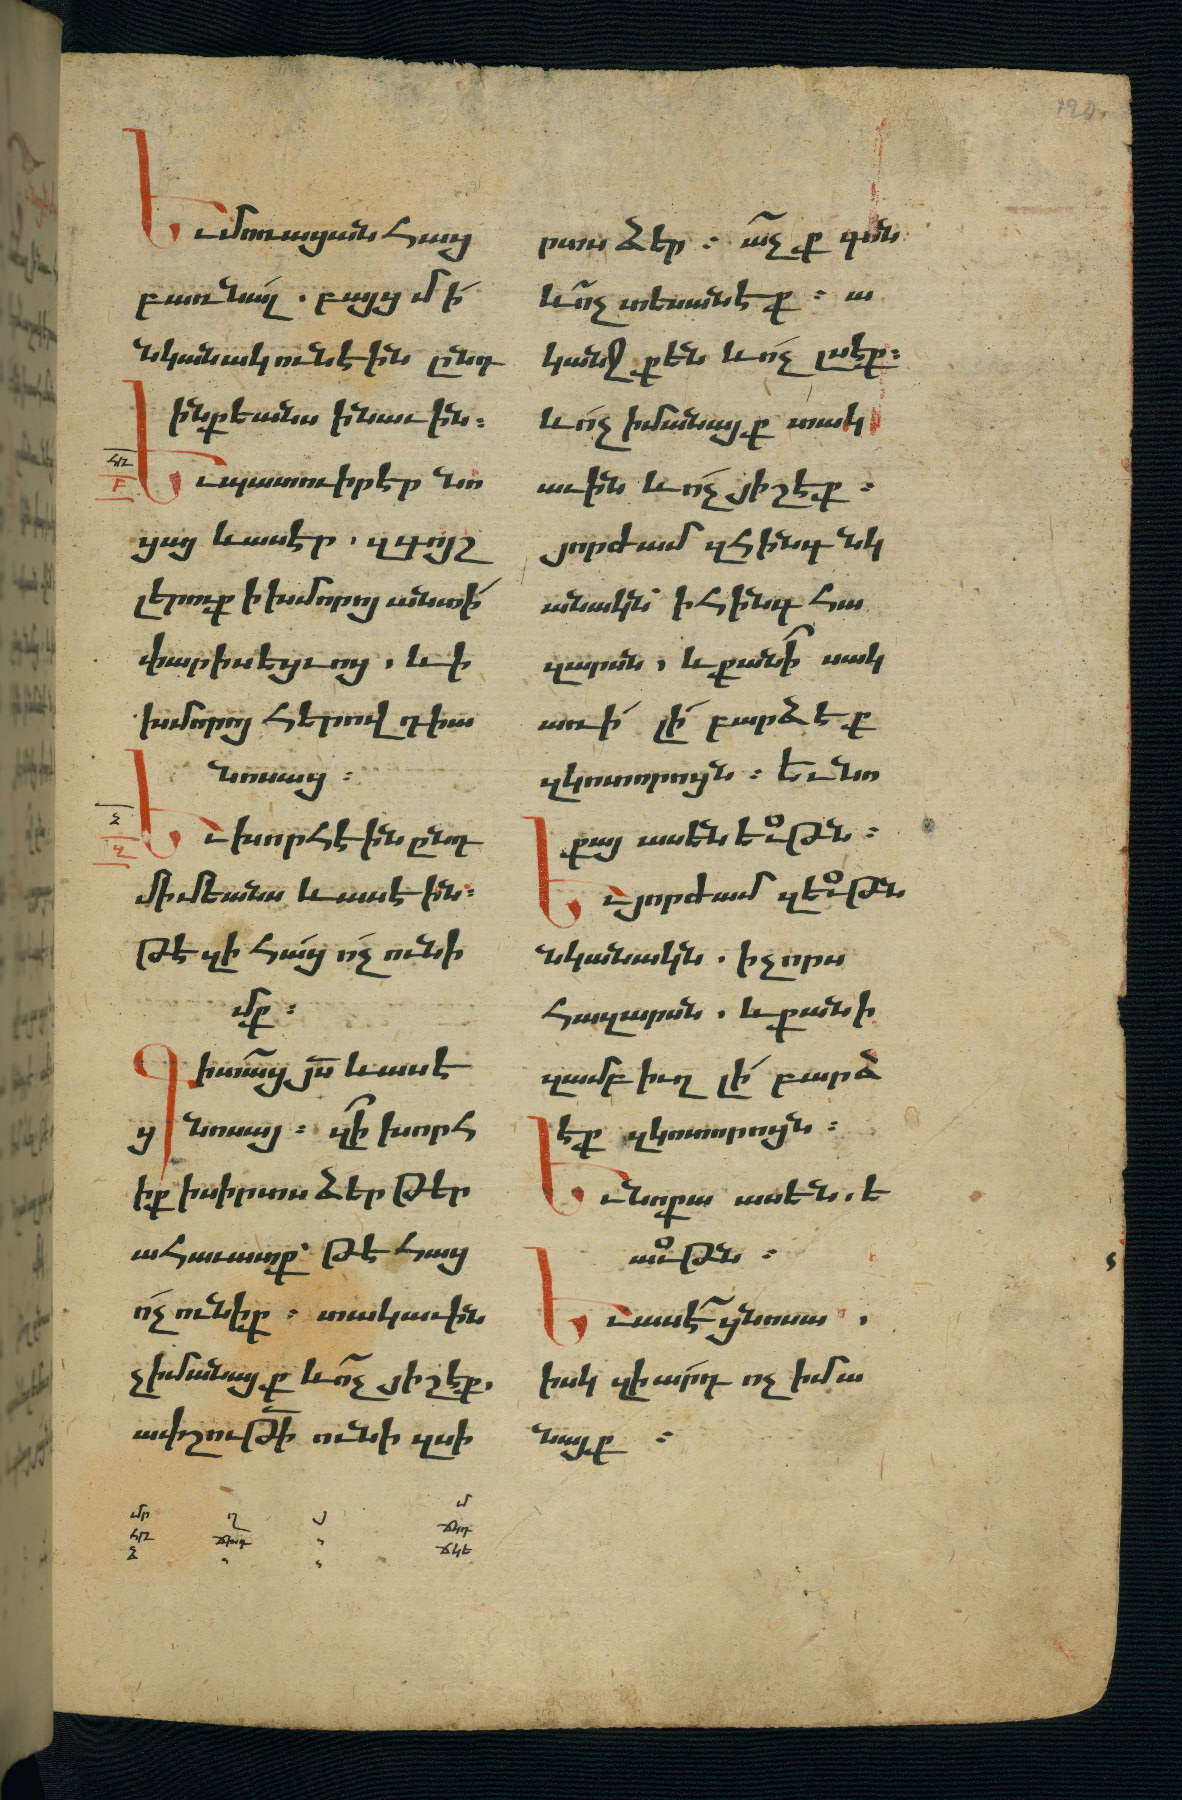 Եւ մոռացան հաց
բառնալ. բայց մի
նկանակ ունէին ընդ
ինքեանս ի նաւին։
ՀԶ
Բ
Եւ պատուիրէր նո
ցայ եւ ասէր. զգոյշ
լերուք ի խմորոյ անտի
փարիսեցւոց, եւ ի
խմորոյ հերովդիա
նոսաց։
Եւ խորհէին ընդ
միմեանս եւ ասէին։
Թէ զի հաց ոչ ունի
մք։
Գիտաց յս եւ ասէ
ց նոսայ։ զի խորհ
իք ի սիրտս ձեր թեր
ահաւատք՝ թէ հաց
ոչ ունիք։ տակաւին
չիմանայք եւ ոչ յիշէք,
ափշութի ունի զսի
րտս ձեր։ աչք գոն
եւ ոչ տեսանէք։ ա
կանջք են եւ ոչ լսէք։
եւ ոչ իմանայք տակ
աւին եւ ոչ յիշէք։
յորժամ զհինգ նկ
անակն՝ ի հինգ հա
զարսն, եւ քանի սակ
առի լի բարձէք
զկոտորոյն։ Եւ նո
քայ ասեն երկոտասն։
Եւ յորժամ զեւթն
նկանակն. ի չորս
հազարսն, եւ քանի
զամբիւղ լի բարձ
էք զկոտորոյն։
Եւ նոքա ասեն. ե
աւթն։
Եւ ասէ ցնոսա,
իսկ զիարդ ոչ իմա
նայք։